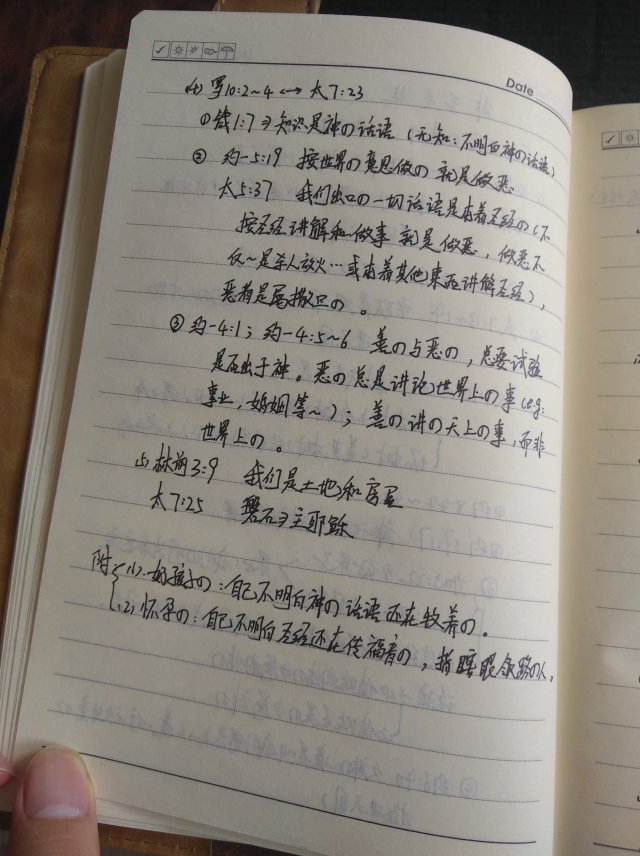 Date
(4) 罗10:2~4 ↔ 太7:23
① 箴1:7 ⇒ 知识是神の话语 (无知: 不明白神の话语)
② 约一5:19 按世界の意思做の 就是做恶
太5:37 我们出口の一切话语是本着圣经の (不
按圣经讲解和做事 就是做恶, 做恶不
仅~是杀人放火…或本着其他东西讲解圣经),
恶者是属撒旦の。
③ 约一4:1; 约一4:5~6 善の与恶の, 总要试验
是否出于神。恶の总是讲论世界上の事 (eg:
事业, 婚姻等~); 善の讲の天上の事, 而非
世界上の。
(5) 林前3:9 我们是土地和房屋
太7:25 磐石⇒主耶稣
附 (1). 奶孩の: 自己不明白神の话语还在牧养の。
(2) 怀孕の: 自己不明白圣经还在传福音の, 指瞎眼领路の人.